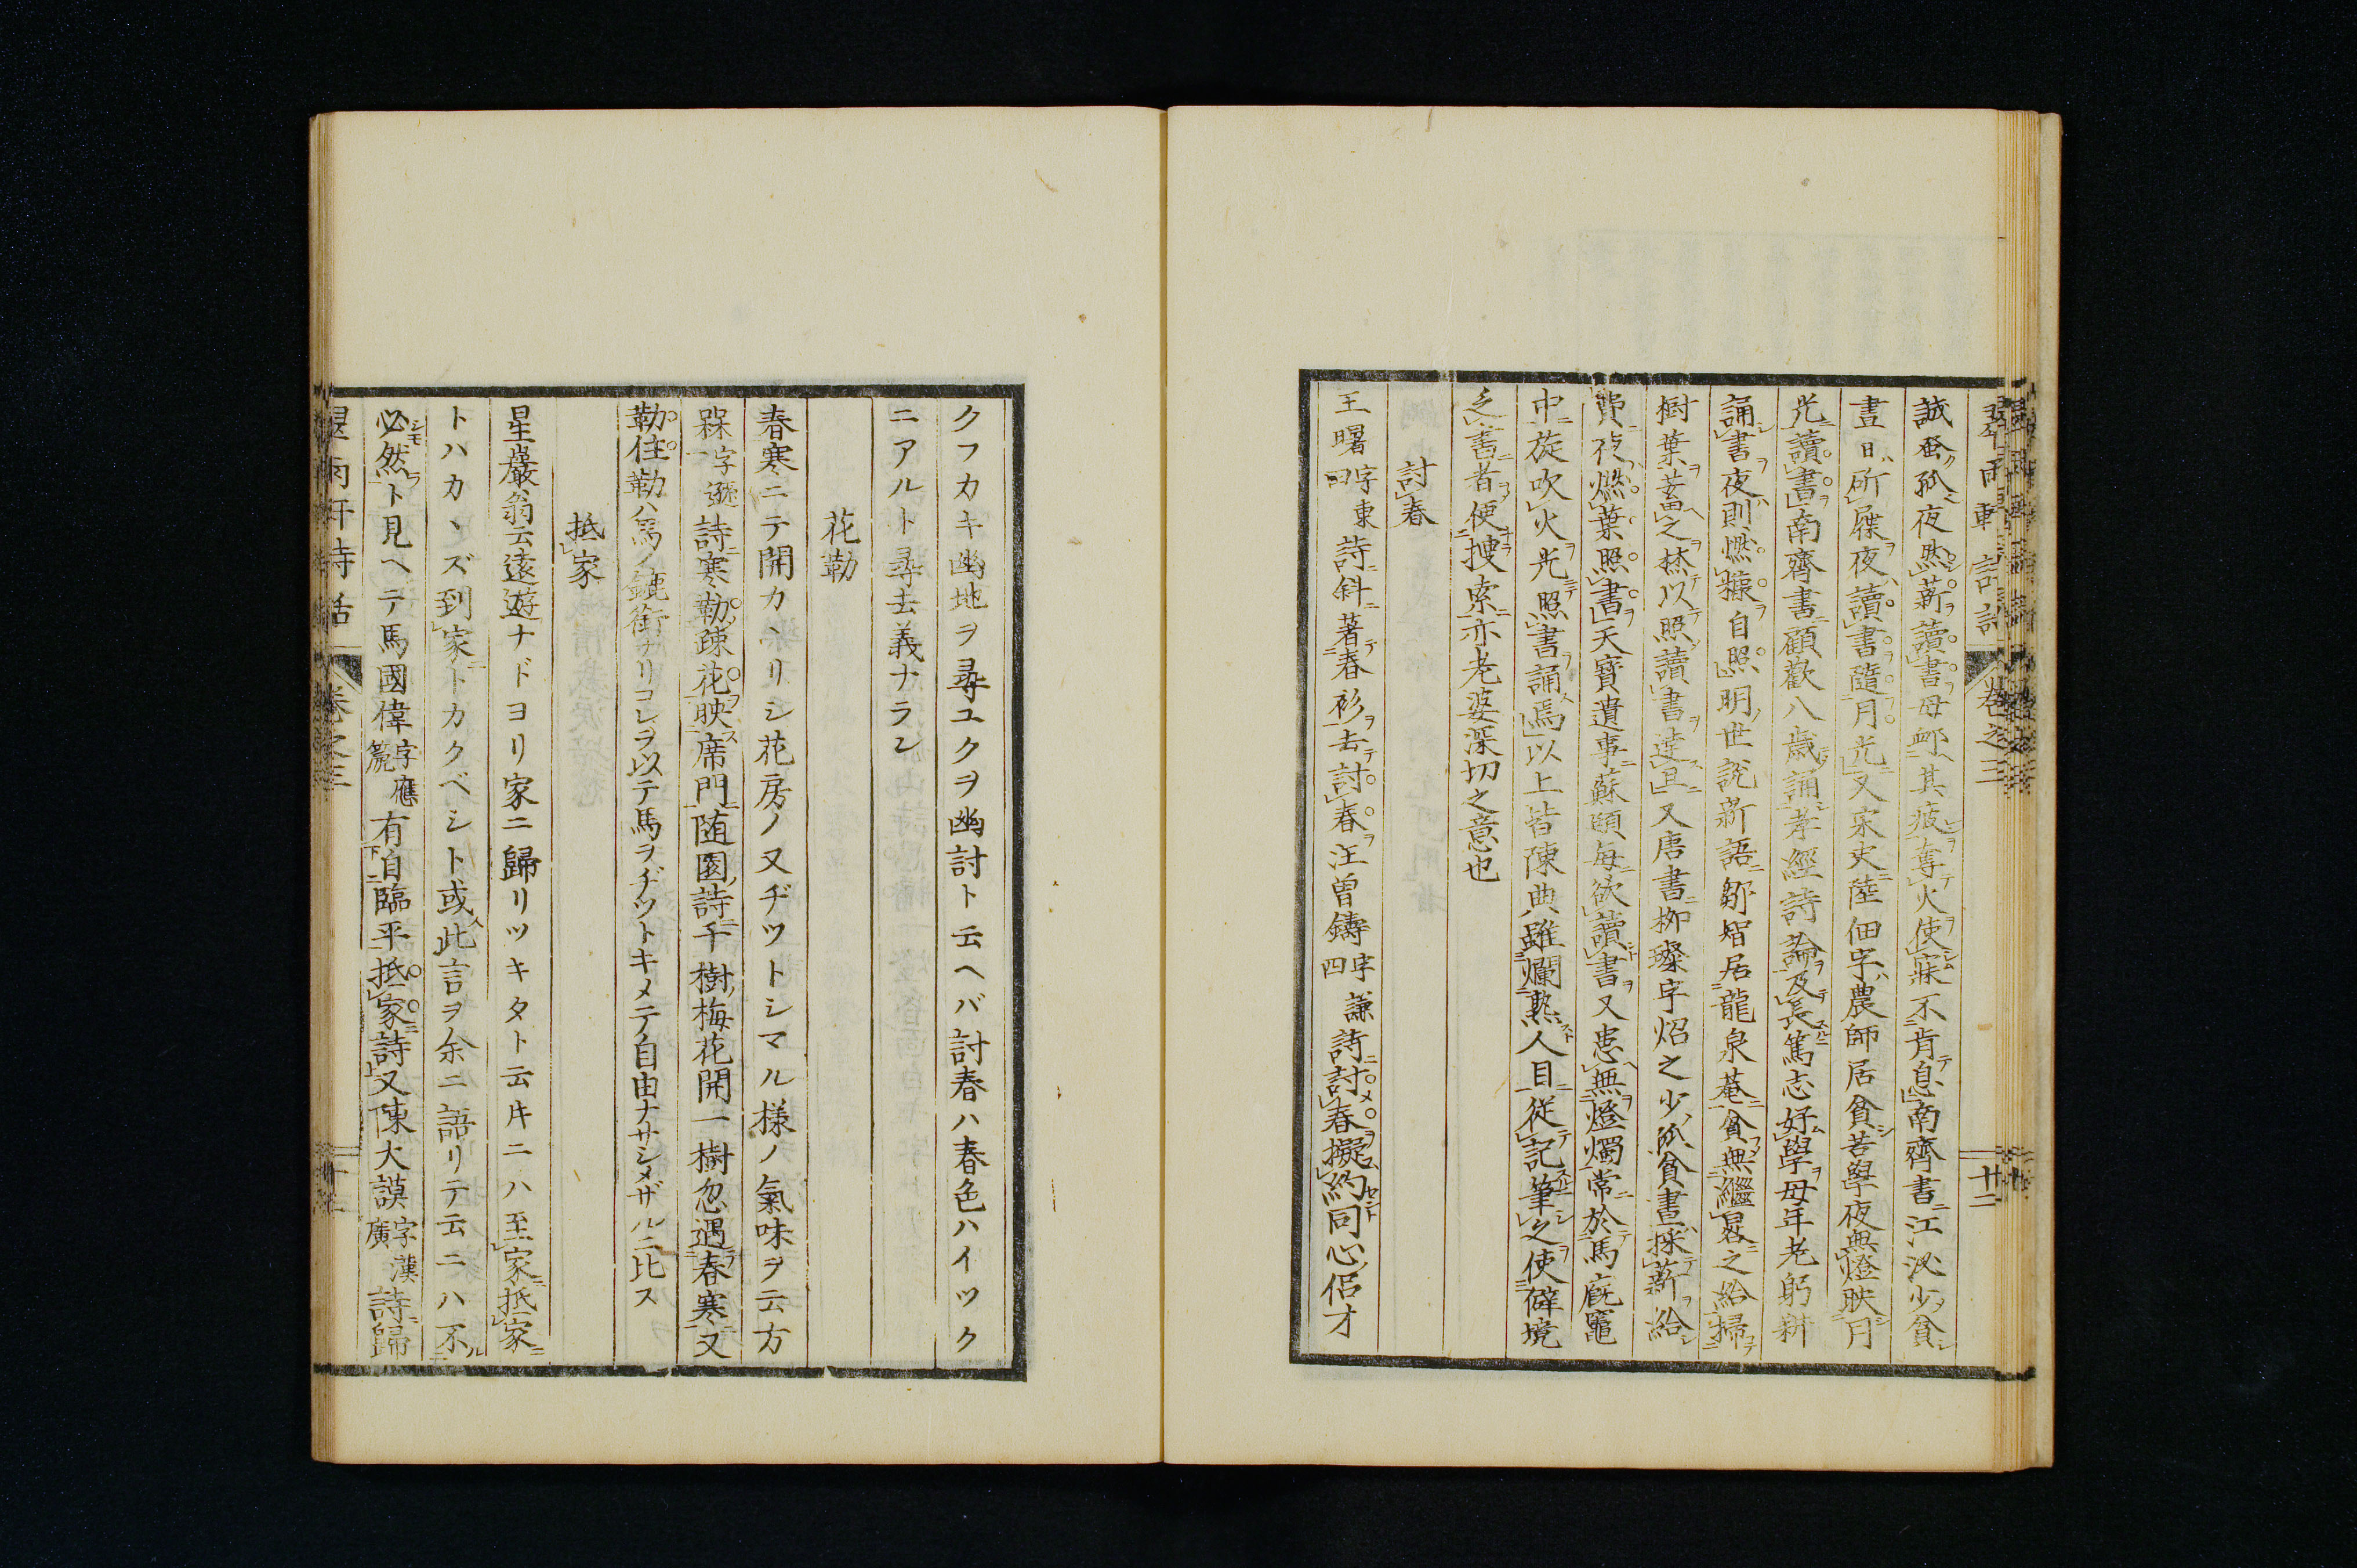 誠蚤孤夜燃薪讀書母䘏其疲奪火使寐不肯息南齊書江泌少貧
晝日斫屧夜讀書隨月光又宋史陸佃字農師居貧苦學夜無燈映月
光讀書南齊書顧歡八歲誦孝經詩論及長篤志好學母年老躬耕
誦書夜則燃糠自照明世說新語鄒智居龍泉菴貧無繼晷之給掃
樹葉蓄之焚以照讀書達旦又唐書柳璨字炤之少孤貧晝採薪給
費夜燃葉照書天寶遺事蘇頲每欲讀書又患無燈燭常於馬廐竈
中旋吹火光照書誦焉以上皆陳典雖爛熟人目從記筆之使僻境
乏書者便捜索亦老婆深切之意也
討春
王曙字東曰詩斜著春衫去討春汪曽鑄字謙四詩討春擬約同心侶才
クフカキ幽地ヲ尋ユクヲ幽討ト云ヘバ討春ハ春色ハイツク
ニアルト尋去義ナラン
花勒
春寒ニテ開カヽリシ花房ノ又ヂツトシマル様ノ氣味ヲ云方
槑字遜一詩寒勒疎花映席門随園詩千樹梅花開一樹忽遇春寒又
勒住勒ハ馬ノ鑣銜ナリコレヲ以テ馬ヲヂツトキメテ自由ナサシメザルニ比ス
抵家
星巖翁云遠遊ナドヨリ家ニ歸リツキタト云片ニハ至家抵家
トハカヽズ到家トカクベシト或人此言ヲ余ニ語リテ云ニハ不
必然ト見ヘテ馬國偉字應箎有自臨平抵家詩又陳大謨字漢廣詩歸
卷之三
十二